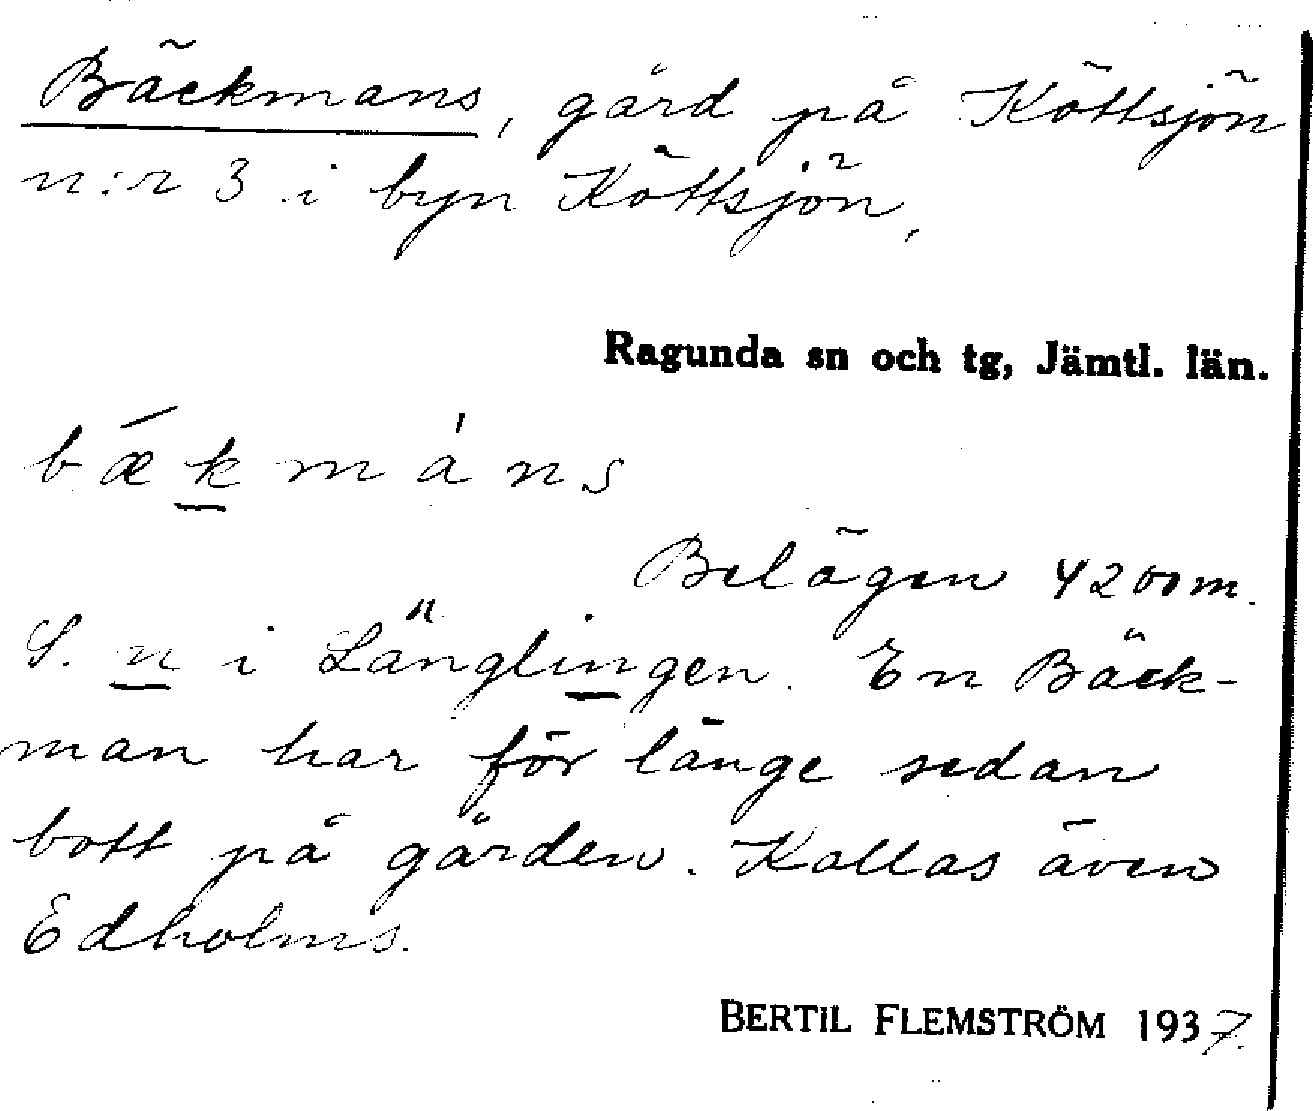 Bäckmans, gård på Köttsjön
n:r 3 i byn Köttsjön,
Ragunda sn och tg, Jämtl. län.
bǽkmáns
Belägen 4200 m.
S. n i Länglingen. En Bäck-
man har för länge sedan
bott på gården. Kallas även
Edholms.
BERTIL FLEMSTRÖM 1937.